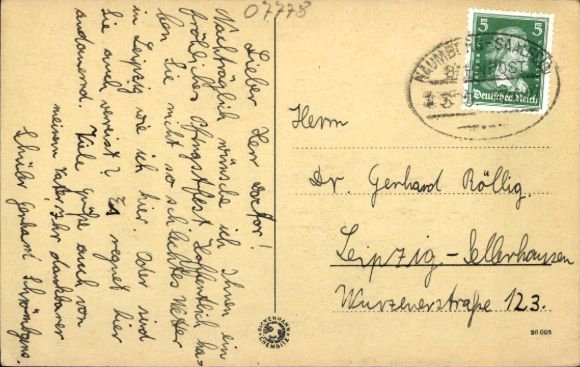 07778
Lieber Herr Doktor!
Nachträglich wünsche ich Ihnen ein
fröhliches Pfingstfest. Hoffentlich ha-
ben Sie nicht so schlechtes Wetter
in Leipzig wie ich hier. Oder sind
Sie auch verreist? Es regnet hier
andauernd. Viele Grüße auch von
meinem Vater, Ihr dankbarer
Schüler Gerhard
5 5
Deutsches Reich
NAUMBURG-SAALFELD
BAHNPOST
Herrn
Dr. Gerhard Röllig,
Leipzig-Sellerhausen
Wurzenerstraße 123.
PICKENHAHN
CHEMNITZ
26 005